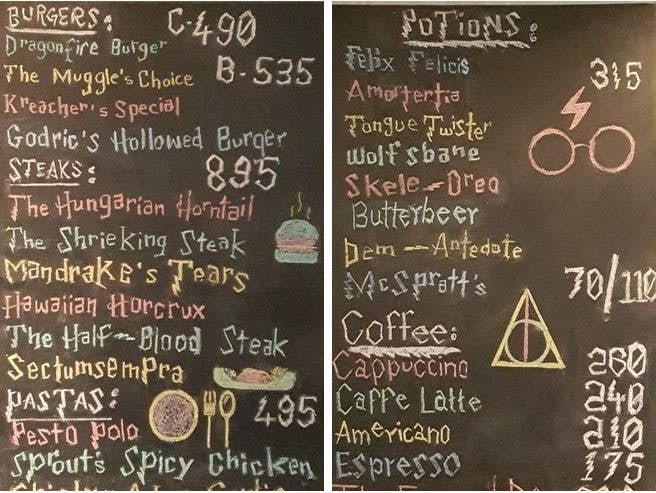 BURGERS: C-490
Dragonfire Burger
The Muggle's Choice B-535
Kreacher's Special
Godric's Hollowed Burger
STEAKS: 895
The Hungarian Horntail
The Shrieking Steak
Mandrake's Tears
Hawaiian Horcrux
The Half-Blood Steak
Sectumsempra
PASTAS: 495
Pesto Polo
Sprout's Spicy Chicken
POTIONS:
Felix Felicis 315
Amortertia
Tongue Twister
Wolfsbane
Skele-Dreo
Butterbeer
Dem-Antedate
McSpratt's 70/110
Coffee:
Cappuccino 260
Caffe Latte 240
Americano 210
Espresso 175